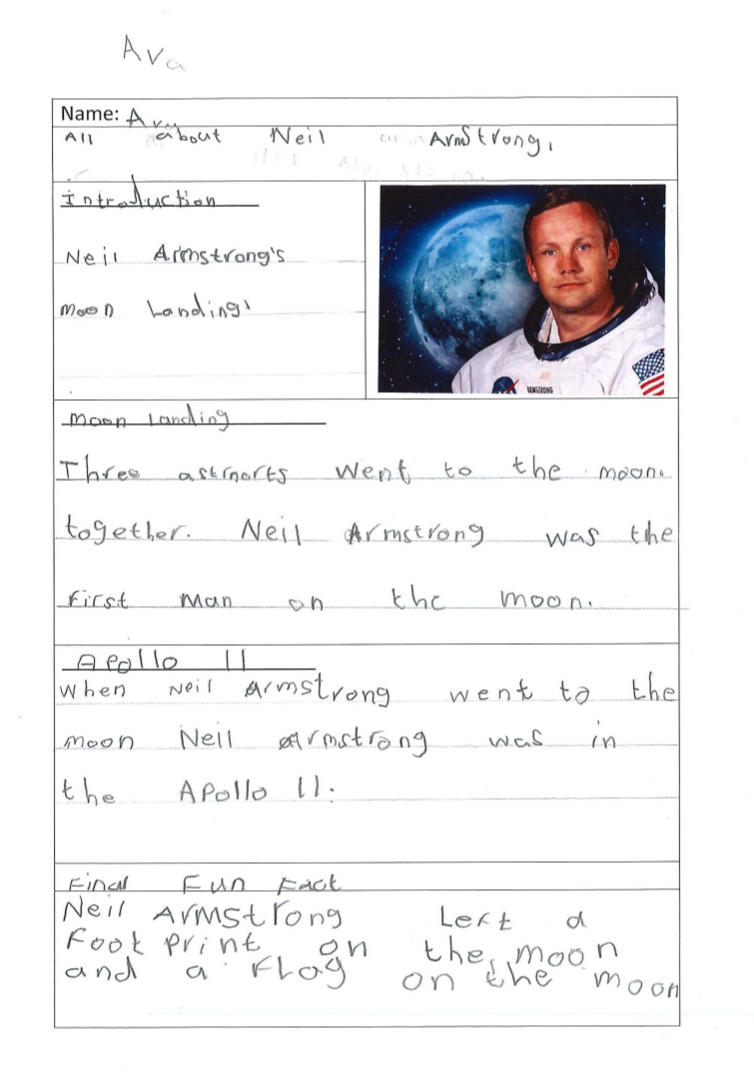 Ava
Name: Ava
All about Neil Armstrong.
Introduction
Neil Armstrong's
moon Landing.
ARMSTRONG
moon Landing
Three astrnorts went to the moon.
together. Neil Armstrong was the
first man on the moon.
Apollo 11
When Neil Armstrong went to the
moon Neil Armstrong was in
the Apollo 11.
Final Fun Fact
Neil Armstrong Left a
Foot print on the moon
and a Flag on the moon